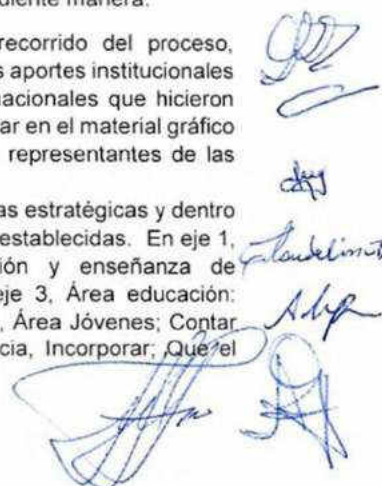 diente manera:
recorrido del proceso,
s aportes institucionales
nacionales que hicieron
ar en el material gráfico
representantes de las
as estratégicas y dentro
establecidas. En eje 1,
ión y enseñanza de
eje 3, Área educación:
, Área Jóvenes; Contar
cia, Incorporar; Que el